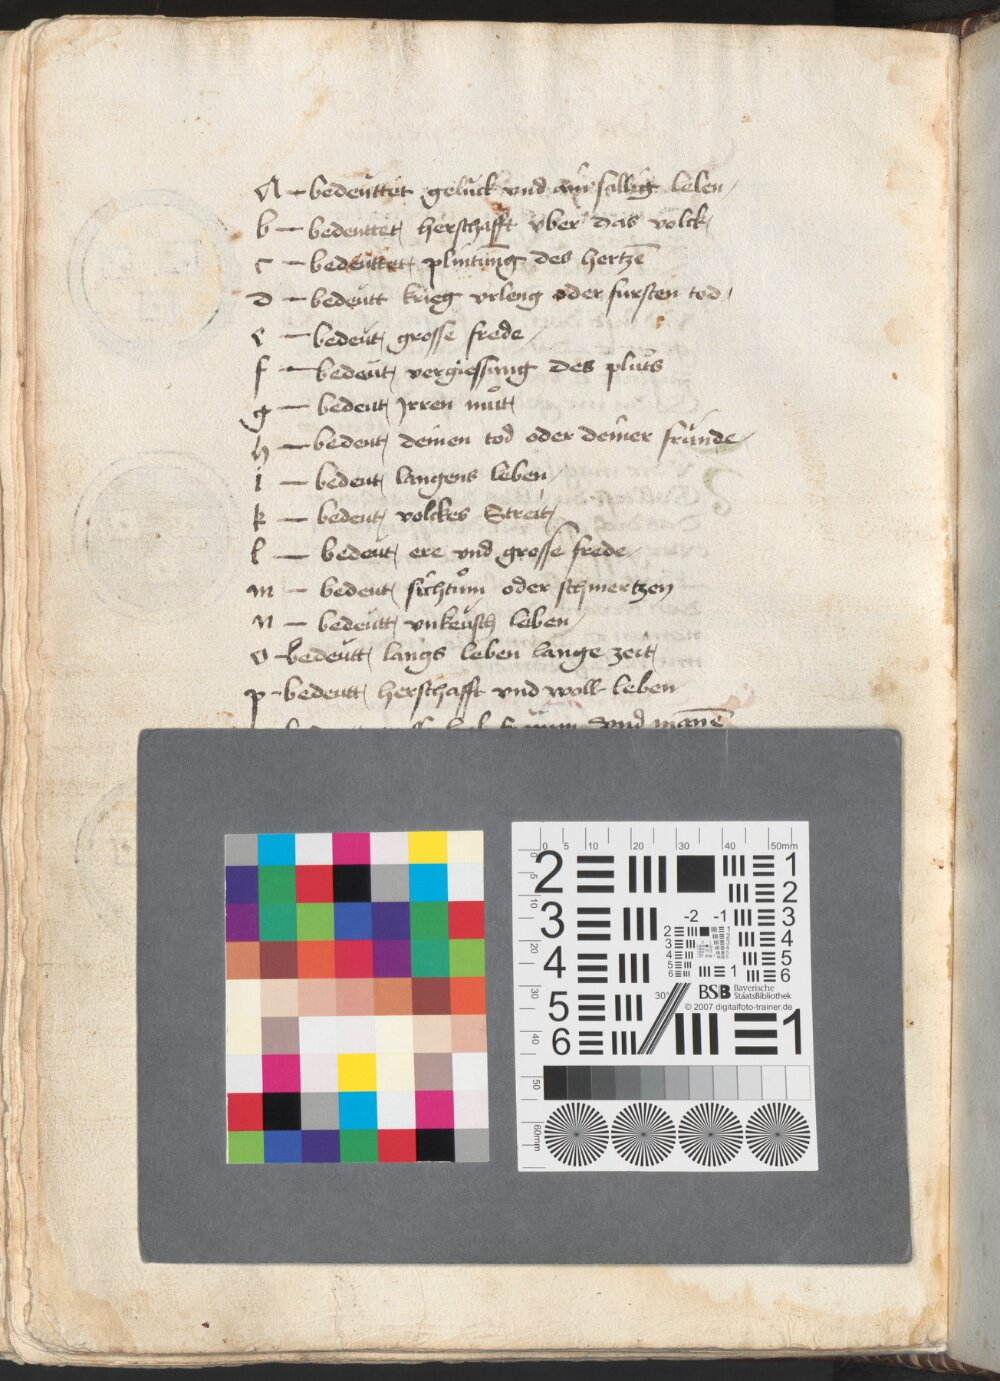 A — bedeuttet gelück vnd ain sallig leben
b — bedeuttet herschafft vber das volck
c — bedeuttet plintung des hertzē
d — bedeutt krieg vrleng oder fursten tod
e — bedeut grosse frede
f — bedeut vergiessung des pluts
g — bedeut Jrren mut
h — bedeut deinen tod oder deiner fründe
i — bedeut langens leben
k — bedeut volckes Streit
l — bedeut ere vnd grosse frede
m — bedeut sichtum oder schmertzen
n — bedeutt vnkeusch leben
o — bedeutt langs leben lange zeit
p — bedeutt herschafft vnd woll leben
vnd manē
0 5 10 20 30 40 50mm
2 1
2
3 3
4 4
5 5
6 6
-2 -1
2 1
3 2
4 3
5 4
6 5
6
1
30°
BSB Bayerische StaatsBibliothek
© 2007 digitalfoto-trainer.de
1
0
10
20
30
40
50
60mm